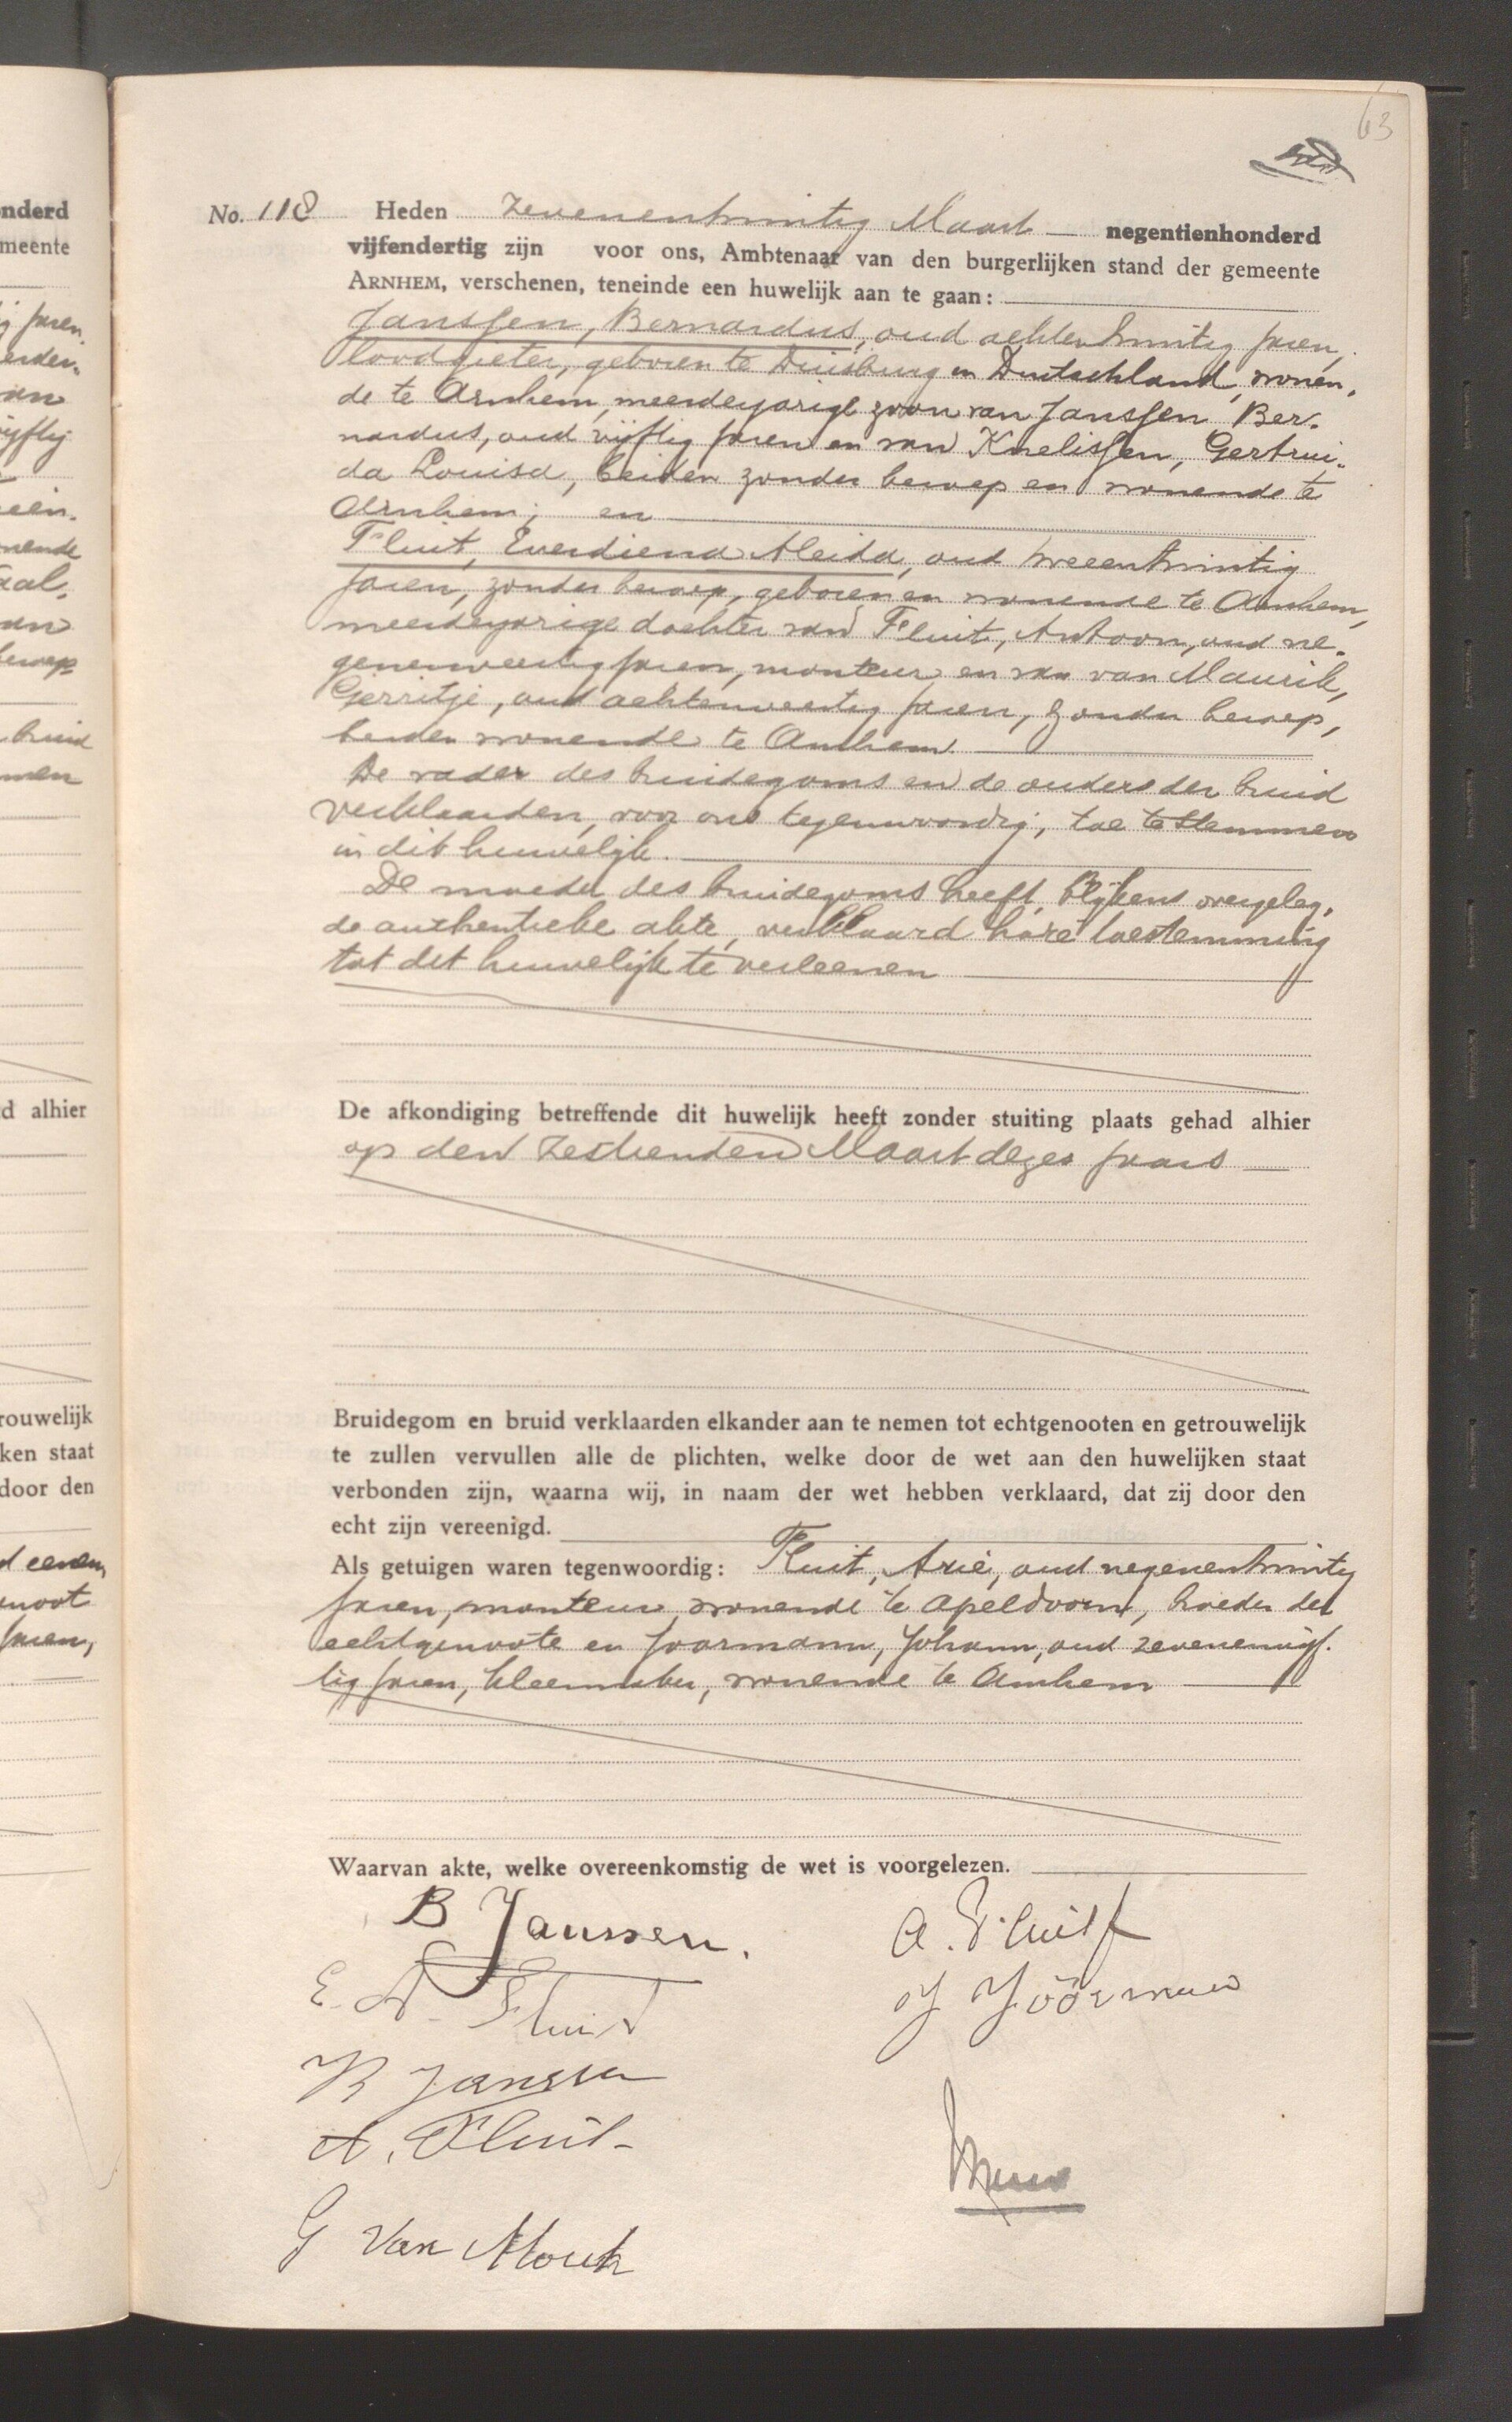 63
No. 118 Heden zevenentwintig Maart negentienhonderd
vijfendertig zijn voor ons, Ambtenaar van den burgerlijken stand der gemeente
ARNHEM, verschenen, teneinde een huwelijk aan te gaan:
Janssen, Bernardus, oud achtentwintig jaren,
loodgieter, geboren te Duisburg in Duitschland, wonen-
de te Arnhem, meerderjarige zoon van Janssen Ber-
nardus, oud vijftig jaren en van Knelissen, Gertrui-
da Louisa, beiden zonder beroep en wonende te
Arnhem; en
Fluit, Everdiena Aleida, oud tweeentwintig
jaren, zonder beroep, geboren en wonende te Arnhem,
meerderjarige dochter van Fluit, Antoon, oud ne-
genenveertig jaren, monteur en van van Maurik,
Gerritje, oud achtenveertig jaren, zonder beroep,
beiden wonende te Arnhem.
De vader des bruidegoms en de ouders der bruid
verklaarden, voor ons tegenwoordig, toe te stemmen
in dit huwelijk.
De moeder des bruidegoms heeft, blijkens overgeleg-
de authentieke akte, verklaard hare toestemming
tot dit huwelijk te verleenen
De afkondiging betreffende dit huwelijk heeft zonder stuiting plaats gehad alhier
op den zestienden Maart dezes jaars
Bruidegom en bruid verklaarden elkander aan te nemen tot echtgenooten en getrouwelijk
te zullen vervullen alle de plichten, welke door de wet aan den huwelijken staat
verbonden zijn, waarna wij, in naam der wet hebben verklaard, dat zij door den
echt zijn vereenigd.
Als getuigen waren tegenwoordig: Fluit, Arie, oud negenentwintig
jaren, monteur, wonende te Apeldoorn, broeder der
echtgenoote en Joormann, Johann, oud zevenenvijf-
tig jaren, kleermaker, wonende te Arnhem
Waarvan akte, welke overeenkomstig de wet is voorgelezen.
B Janssen.
A. Fluit
E. A. Fluit
J Jöörmann
B Janssen
A. Fluit
G van Mourik
nderd
meente
jaren
vijftig
nende
beroep
bruid
d alhier
rouwelijk
ken staat
door den
noot
jaren,